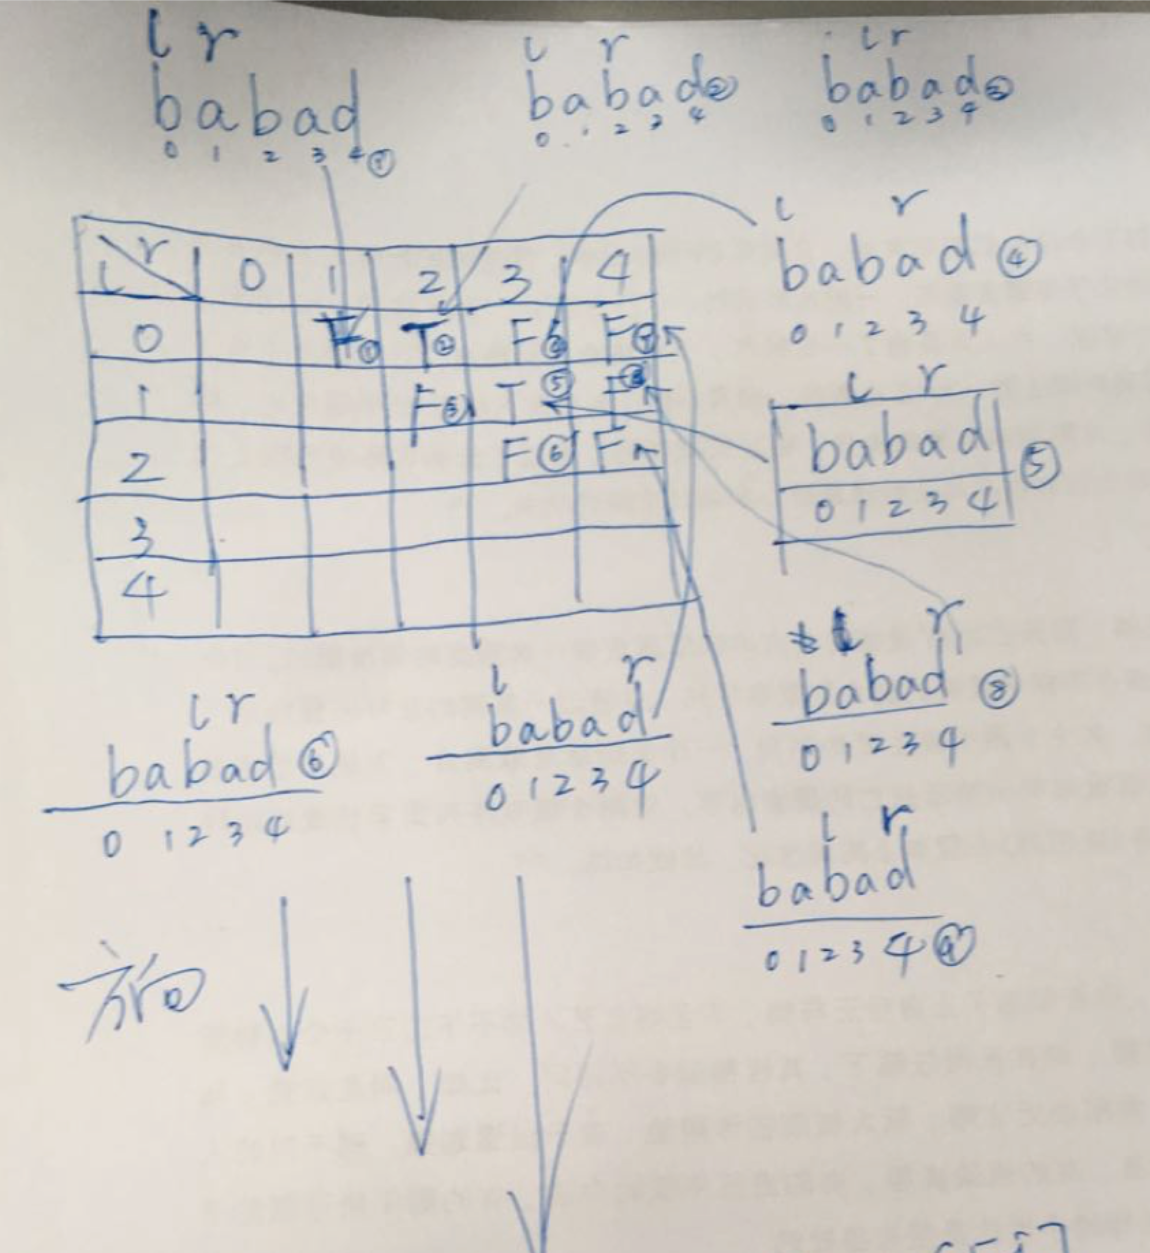 l r
babad
0 1 2 3 4 ①
l r
babad ②
0 1 2 3 4
l r
babad ③
0 1 2 3 4
l r
babad ④
0 1 2 3 4
l r 0 1 2 3 4
0 F① T② F④ F⑦
1 F③ T⑤ F⑧
2 F⑥ F
3
4
l r
babad ⑤
0 1 2 3 4
l r
babad ⑧
0 1 2 3 4
l r
babad ⑥
0 1 2 3 4
l r
babad
0 1 2 3 4
l r
babad
0 1 2 3 4 ⑨
方向